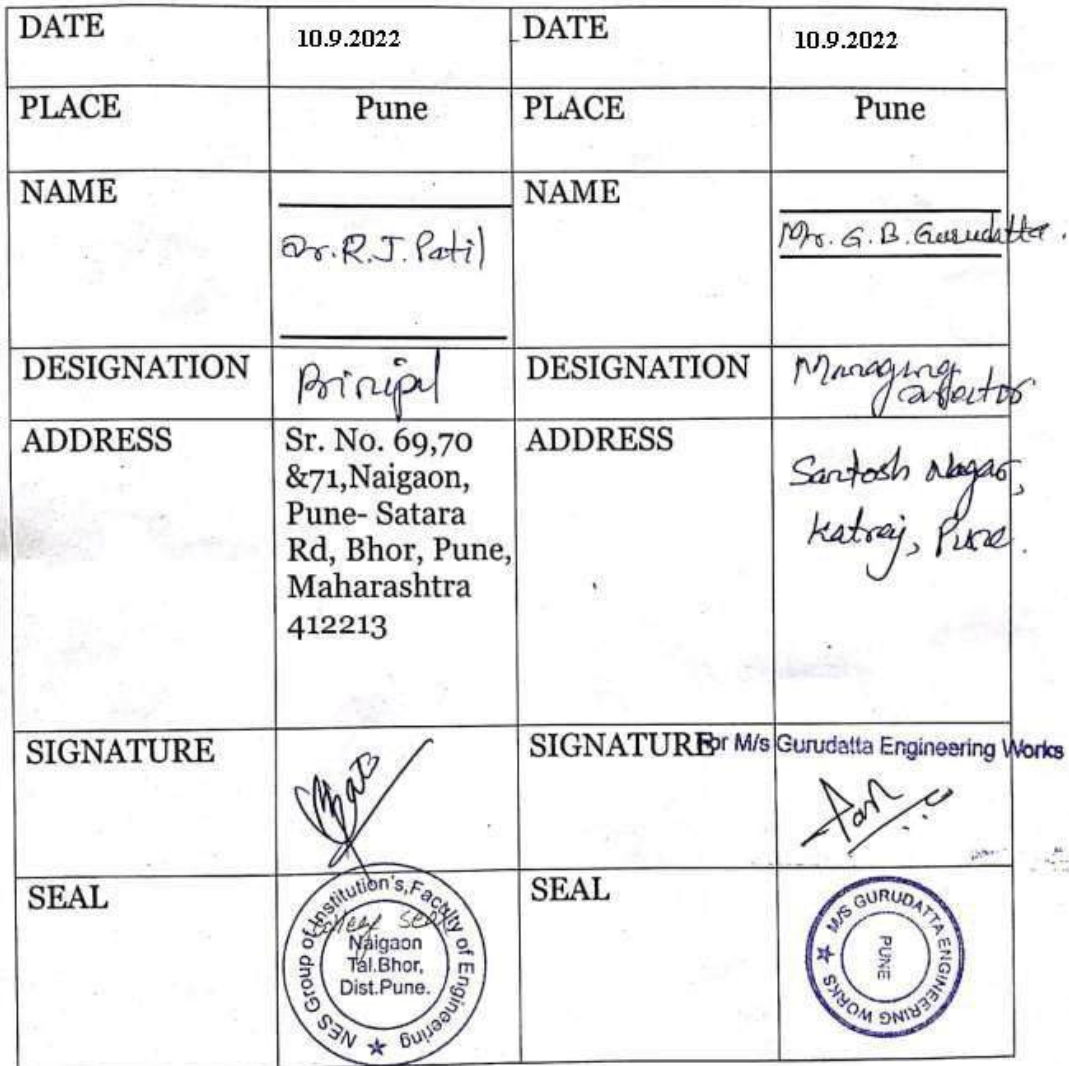 DATE 10.9.2022 DATE 10.9.2022
PLACE Pune PLACE Pune
NAME NAME
Dr. R. J. Patil Mr. G. B. Gurudatta.
DESIGNATION Prinipal DESIGNATION Managing
director
ADDRESS Sr. No. 69,70 ADDRESS
&71,Naigaon, Santosh Nagar,
Pune- Satara Katraj, Pune.
Rd, Bhor, Pune,
Maharashtra
412213
SIGNATURE SIGNATURE For M/s Gurudatta Engineering Works
SEAL SEAL
NES Group of Institution's, Faculty of Engineering
College Seal
Naigaon
Tal.Bhor,
Dist.Pune.
M/S GURUDATTA ENGINEERING WORKS
PUNE